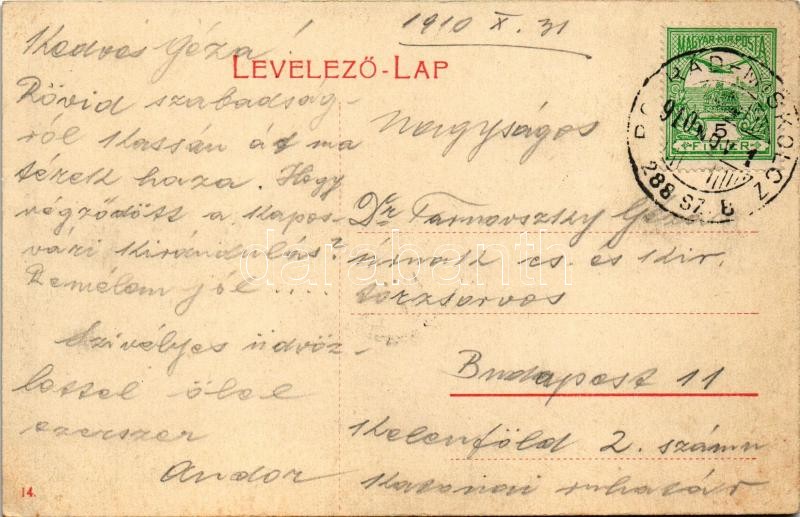 1910 X. 31
Kedves Géza!
LEVELEZŐ-LAP
Rövid szabadság-
ról Kassán át ma
térek haza. Hogy
végződött a kapos-
vári kirándulás?
Remélem jól ....
Szivélyes üdvöz-
lettel ölel
ezerszer
Andor
Nagyságos
Dr Tarnovszky Géza
úrnak cs. és kir.
törzsorvos
Budapest 11
Kelenföld 2. számu
Katonai ruhatár
MAGYAR KIR. POSTA
5
FILLÉR
MISKOLCZ
910 NOV 1
288 SZ. B
14.
darabanth